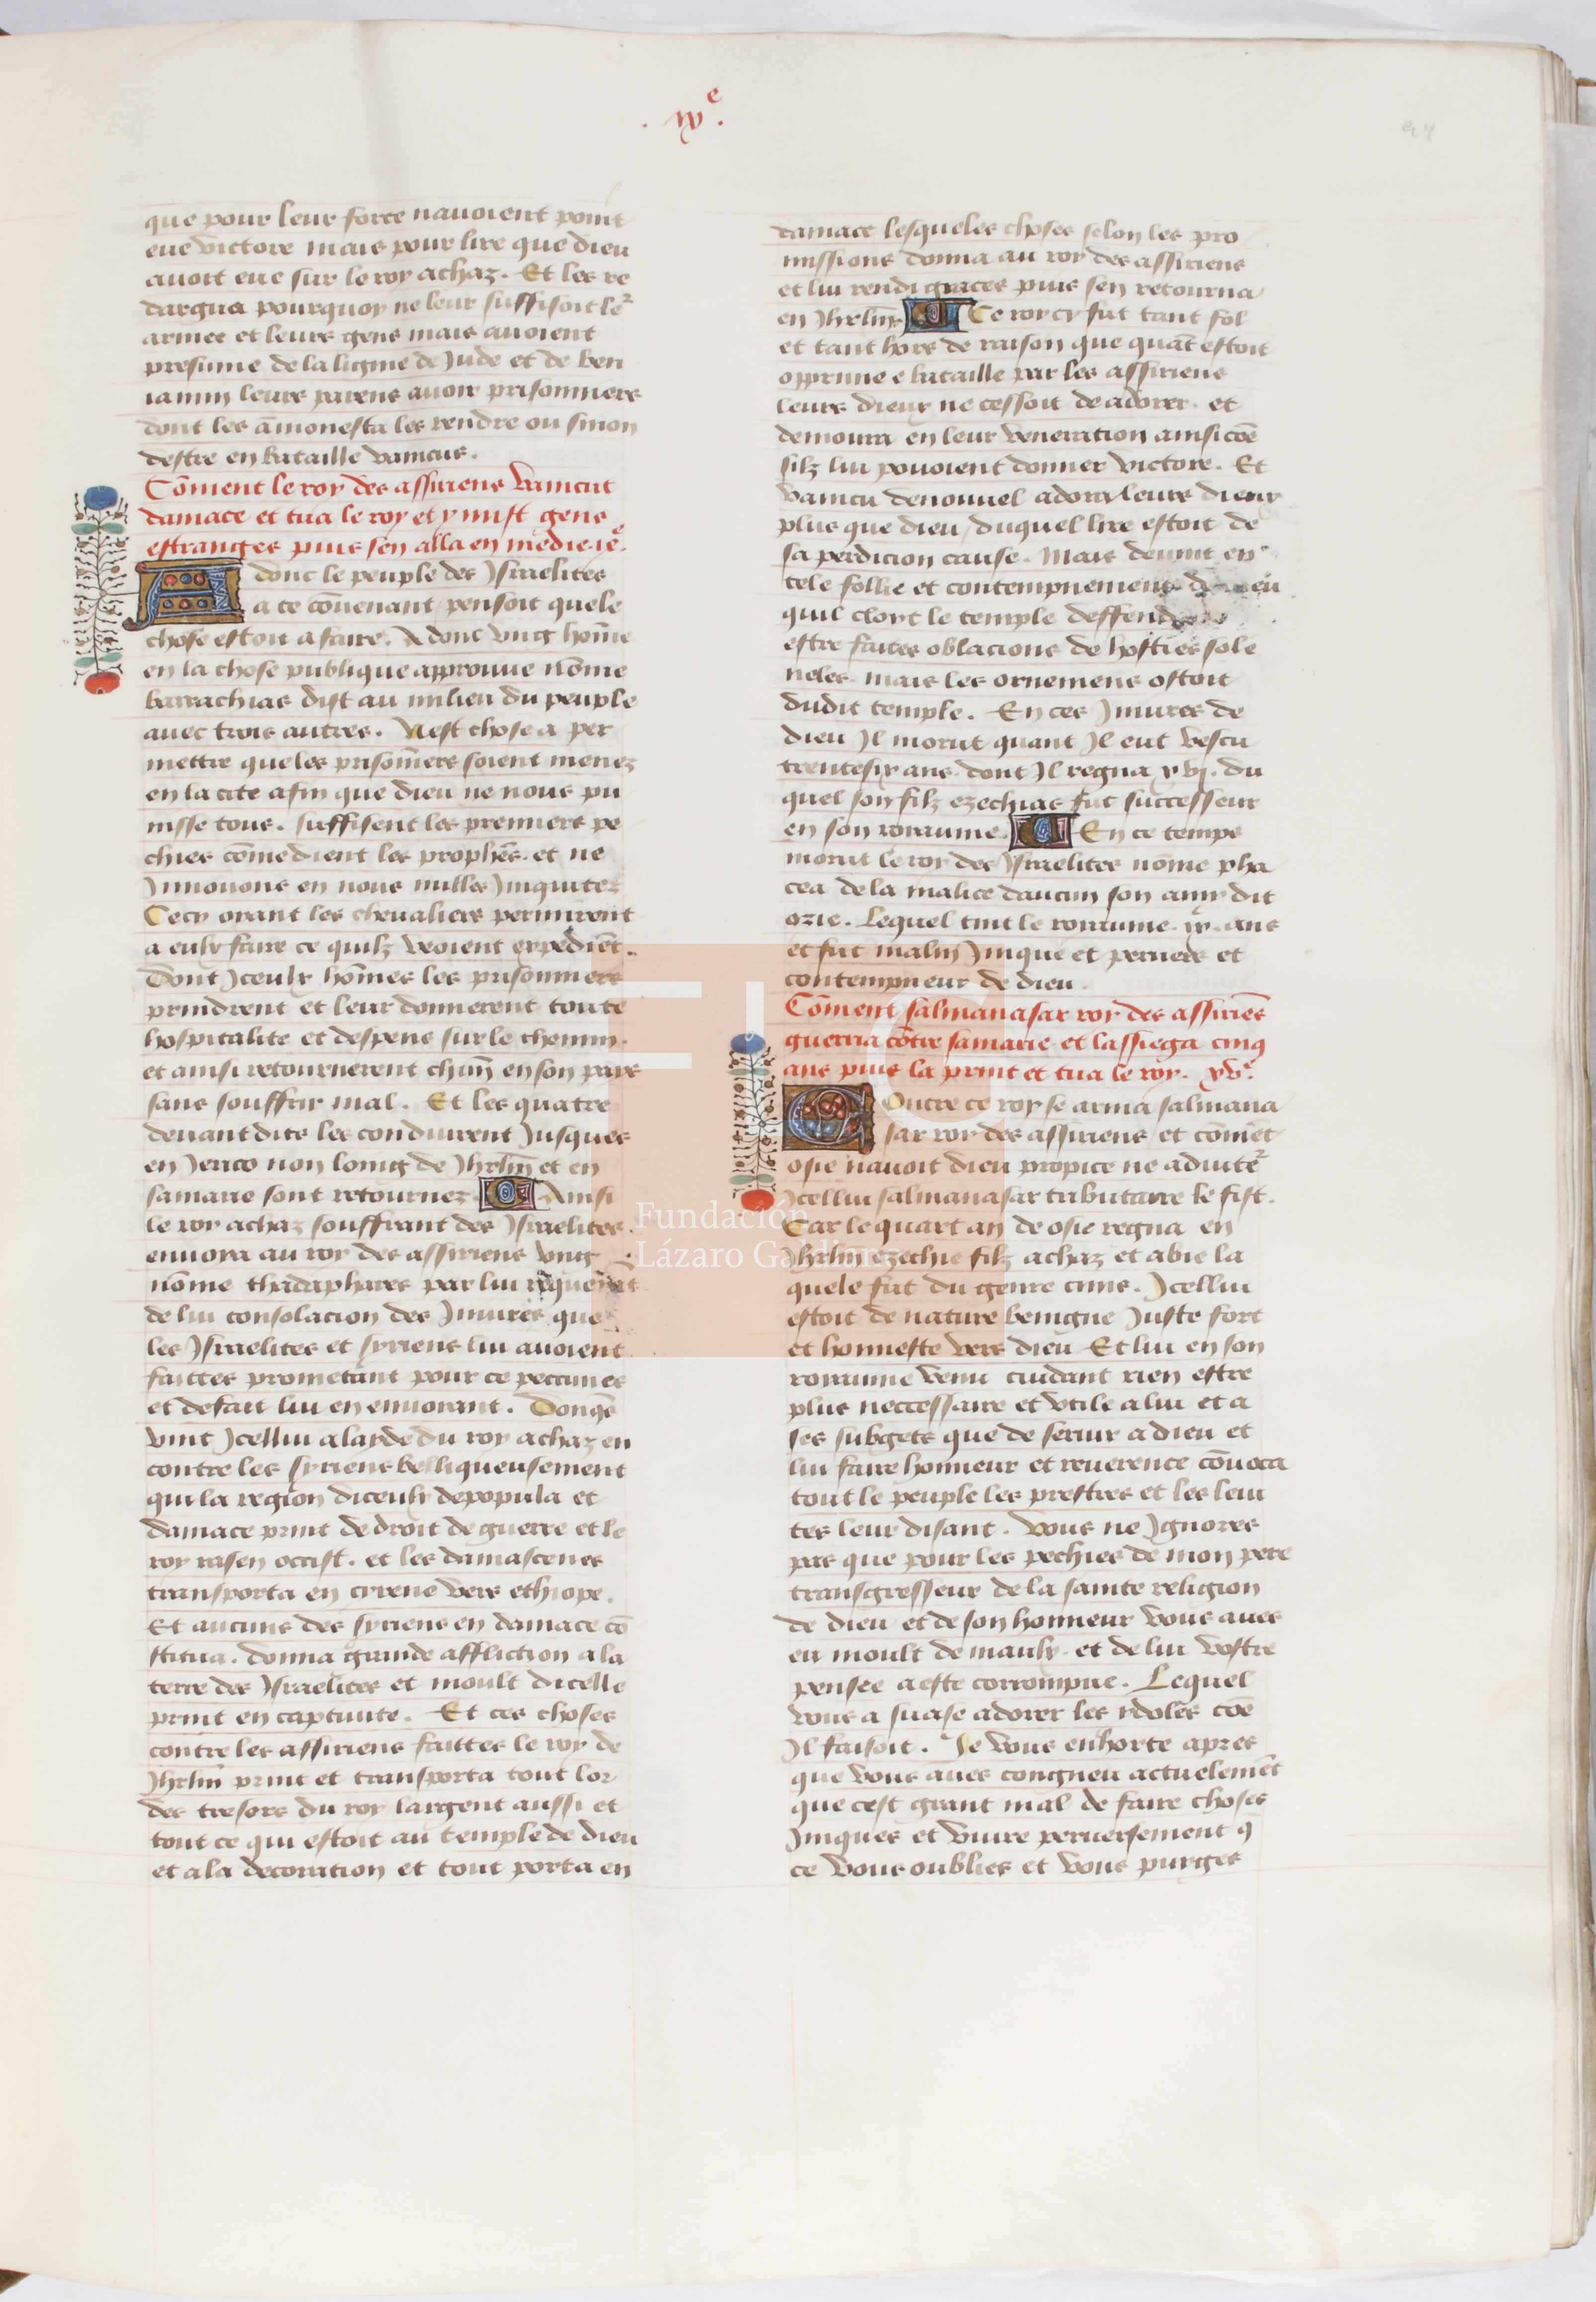 .ix.e
que pour leur force nauoient point
eue victore mais pour lire que dieu
auoit eue sur le roy achaz. Et les re
dargua pourquoy ne leur suffisoit le²
armee et leurs gens mais auoient
presume de la ligne de Jude et de ben
iamin leurs parens auoir prisonniers
dont les āmonesta les rendre ou sinon
destre en bataille vaincus.
Cōment le roy des assiriens vaincut
damace et tua le roy et y mist gens
estranges puis sen alla en medie
Adonc le peuple des Jsraelites
a ce cōuenant pensoit quele
chose estoit a faire. Adonc vng hōme
en la chose publique approuue nōme
barrachias dist au milieu du peuple
auec trois autres. Nest chose a per
mettre que les prisoñiers soient menez
en la cite afin que dieu ne nous pu
nisse tous. suffisent les premiers pe
chies cōme dient les prophēs. et ne
Jnnouons en nous nulles Jniquitez
Cecy oyant les cheualiers permirent
a eulx faire ce quilz veoient expediēt.
Dont Jceulx hōmes les prisonniers
prindrent et leur donnerent toute
hospitalite et despens sur le chemin.
et ainsi retournerent chūn en son pays
sans souffrir mal. Et les quatre
deuant dits les conduirent Jusques
en Jerico non loing de Jhrlm̄ et en
samarie sont retournez. Ainsi
le roy achaz souffrant des Jsraelites.
enuoya au roy des assiriens vng
nōme thadaphares par lui requerāt
de lui consolacion des Jniures que
les Jsraelites et syriens lui auoient
faittes prometant pour ce peccunes
et defait lui en enuoiant. Donqs̄
vint Jcellui a layde du roy achaz en
contre les syriens belliqueusement
qui la region diceulx depopula et
damace print de droit de guerre et le
roy rasen occist. et les damascenes
transporta en cyrene vers ethiope.
Et aucuns des syriens en damace cō
stitua. donna grande affliction a la
terre des Jsraelites et moult dicelle
print en captiuite. Et ces choses
contre les assiriens faittes le roy de
Jhrlm̄ print et transporta tout lor
des tresors du roy largent aussi et
tout ce qui estoit au temple de dieu
et a la decoration et tout porta en
damace lesqueles choses selon les pro
missions donna au roy des assiriens
et lui rendi graces puis sen retourna
en Jhrlm̄ Ce roy cy fut tant fol
et tant hors de raison que quāt estoit
opprime e bataille par les assiriens
leurs dieux ne cessoit de adorer. et
demoura en leur veneration ainsi cōe
silz lui pouoient donner victore. Et
vaincu denouuel adora leurs dieux
plus que dieu duquel lire estoit de
sa perdicion cause. Mais deuint en
tele follie et contempnement
quil clout le temple
estre faites oblacions de hosties sole
neles. mais les ornemens ostoit
dudit temple. En ces Jniures de
dieu Jl morut quant Jl eut vescu
trentesix ans. dont Jl regna xvj. du
quel son filz ezechias fut successeur
en son roiaume. En ce temps
morut le roy des Jsraelites nōme pha
cea de la malice daucun son amy dit
ozie. Lequel tint le roiaume .ix. ans
et fut malin Jnique et peruers et
contempneur de dieu.
Cōment salmanasar roy des assiriēs
guerria cōtre samarie et lassiega cinq
ans puis la print et tua le roy. xve.
Contre ce roy se arma salmana
sar roy des assiriens et cōmēt
osie nauoit dieu propice ne aduite²
Jcellui salmanasar tributaire le fist.
Car le quart an de osie regna en
Jhrlm̄ ezechie filz achaz et abie la
quele fut du genre ciuis. Jcellui
estoit de nature benigne Juste fort
et honneste vers dieu Et lui en son
roiaume venu cuidant rien estre
plus neccessaire et vtile a lui et a
ses subgets que de seruir a dieu et
lui faire honneur et reuerence cōuoca
tout le peuple les prestres et les leui
tes leur disant. Vous ne Jgnores
pas que pour les pechies de mon pere
transgresseur de la sainte religion
de dieu et de son honneur vous aues
eu moult de maulx. et de lui vostre
pensee a este corrompue. Lequel
vous a suase adorer les ydoles cōe
Jl faisoit. Je vous enhorte apres
que vous aues congneu actuelemēt
que cest grant mal de faire choses
Jniques et viure peruersement q̄
ce vous oublies et vous purges
Fundación
Lázaro Galdiano